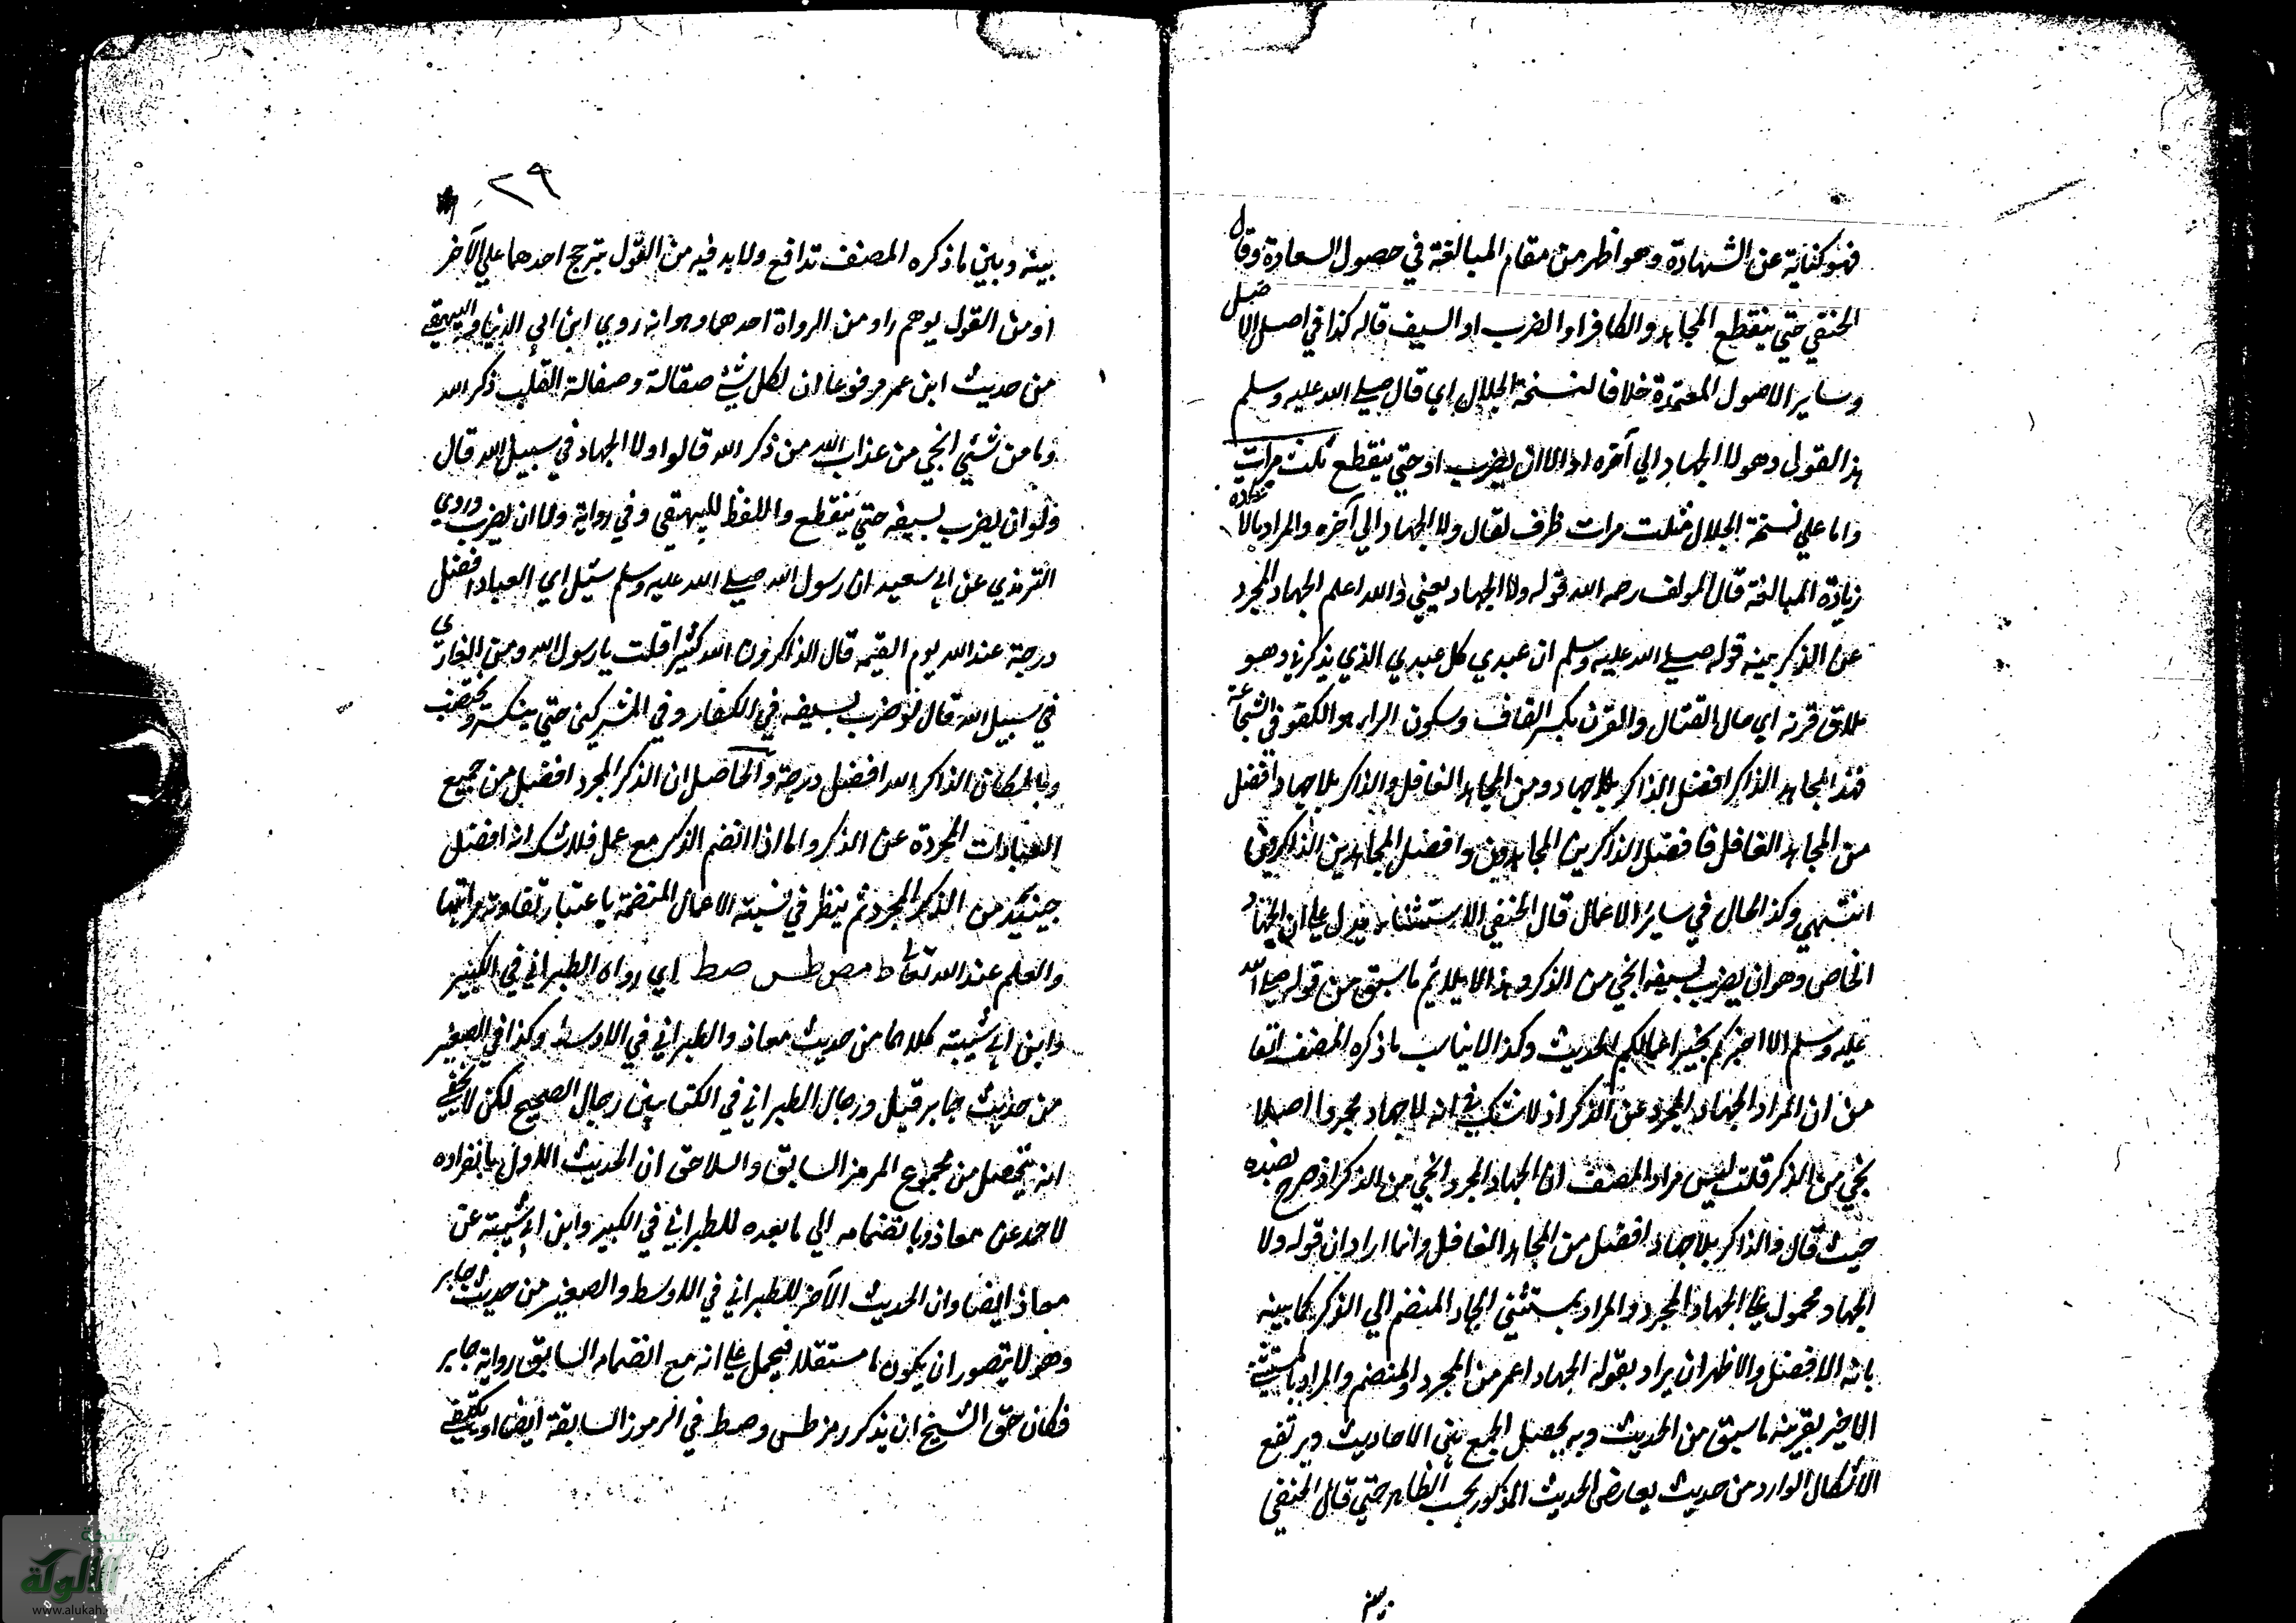 فهو كناية عن الشهادة وهو اظهر من مقام المبالغة في حصول السعادة وقال
الحنفي حتي ينقطع المجاهد والكافر او الضرب او السيف قاله كذا في اصل الاصيل
وساير الاصول المعتمدة خلافا لنسخة الجلال اي قال صلي الله عليه وسلم
هذا القول وهو لا الجهاد الي آخره او الا ان يضرب او حتي ينقطع ثلث مرات
واما علي نسخة الجلال فثلث مرات ظرف لقال ولا الجهاد الي آخره والمراد بالا
زيادة المبالغة قال المولف رحمه الله قوله ولا الجهاد يعني والله اعلم الجهاد المجرد
عن الذكر بينه قوله صلي الله عليه وسلم ان عبدي كل عبدي الذي يذكرني وهو
ملاق قرنه اي حال القتال والقرن بكسر القاف وسكون الراء هو الكفو في الشجاعة
فهذا المجاهد الذاكر افضل الذاكر بلا جهاد ومن المجاهد الغافل والذاكر بلا جهاد افضل
من المجاهد الغافل فافضل الذاكرين المجاهدون وافضل المجاهدين الذاكرون
انتهي وكذا الحال في سائر الاعمال قال الحنفي الاستثناء يدل علي ان الجهاد
الخاص وهو ان يضرب بسيفه انجي من الذكر وهذا لا يلائم ما سبق من قوله صلي الله
عليه وسلم الا اخبركم بخير اعمالكم الحديث وكذا لا يناسب ما ذكره المصنف انفا
من ان المراد الجهاد المجرد عن الذكر اذ لا شك في انه لا جهاد مجردا اصلا
نجي من الذكر قلت ليس مراد المصنف ان الجهاد المجرد انجي من الذكر اذ صرح بضده
حيث قال والذاكر بلا جهاد افضل من المجاهد الغافل وانما اراد ان قوله ولا
الجهاد محمول علي الجهاد المجرد والمراد بمستثني الجهاد المنضم الي الذكر كما بينه
بانه الافضل والاظهر ان يراد بقوله الجهاد اعم من المجرد والمنضم والمراد بالمستثني
الاخير بقرينة ما سبق من الحديث وبه يحصل الجمع بين الاحاديث ويرتفع
الاشكال الوارد من حديث يعارض الحديث المذكور بحسب الظاهر حتي قال الحنفي
بينه
٢٩
بينه وبين ما ذكره المصنف تدافع ولا بد فيه من القول بترجح احدهما علي الآخر
او من القول بوهم راو من الرواة احدهما وهو انه روي ابن ابي الدنيا والبيهقي
من حديث ابن عمر مرفوعا ان لكل شئ صقالة وصقالة القلب ذكر الله
وما من شئ انجي من عذاب الله من ذكر الله قالوا ولا الجهاد في سبيل الله قال
ولو ان يضرب بسيفه حتي ينقطع واللفظ للبيهقي وفي رواية ولا ان يضرب وروي
الترمذي عن ابي سعيد ان رسول الله صلي الله عليه وسلم سئل اي العباد افضل
درجة عند الله يوم القيمة قال الذاكرون الله كثيرا قلت يا رسول الله ومن الغازي
في سبيل الله قال لو ضرب بسيفه في الكفار وفي المشركين حتي ينكسر ويختضب
دما لكان الذاكر الله افضل درجة والحاصل ان الذكر المجرد افضل من جميع
العبادات المجردة عن الذكر واما اذا انضم الذكر مع عمل فلا شك انه افضل
حينئذ من الذكر المجرد ثم ينظر في نسبة الاعمال المنضمة باعتبار تفاوت مراتبها
والعلم عند الله تعالي ط مص طس صط اي رواه الطبراني في الكبير
وابن ابي شيبة كلاهما من حديث معاذ والطبراني في الاوسط وكذا في الصغير
من حديث جابر قيل ورجال الطبراني في الكتابين رجال الصحيح لكن لا يخفي
انه يتحصل من مجموع المرمز السابق والسلاحق ان الحديث الاول بانفراده
لاحمد عن معاذ وبانضمامه الي ما بعده للطبراني في الكبير وابن ابي شيبة عن
معاذ ايضا وان الحديث الآخر للطبراني في الاوسط والصغير من حديث جابر
وهو لا يتصور ان يكون ما مستقلا فيحمل علي انه مع انضمامه السابق رواية جابر
فكان حق الشيخ ان يذكر رمز طس وصط في الرموز السابقة ايضا او يكتفي
شبكة
الألوكة
www.alukah.net